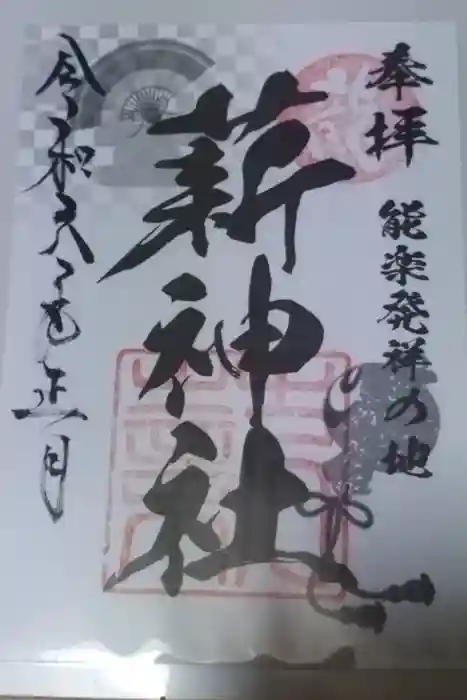 奉拝
能楽発祥の地
薪神社
令和 正月